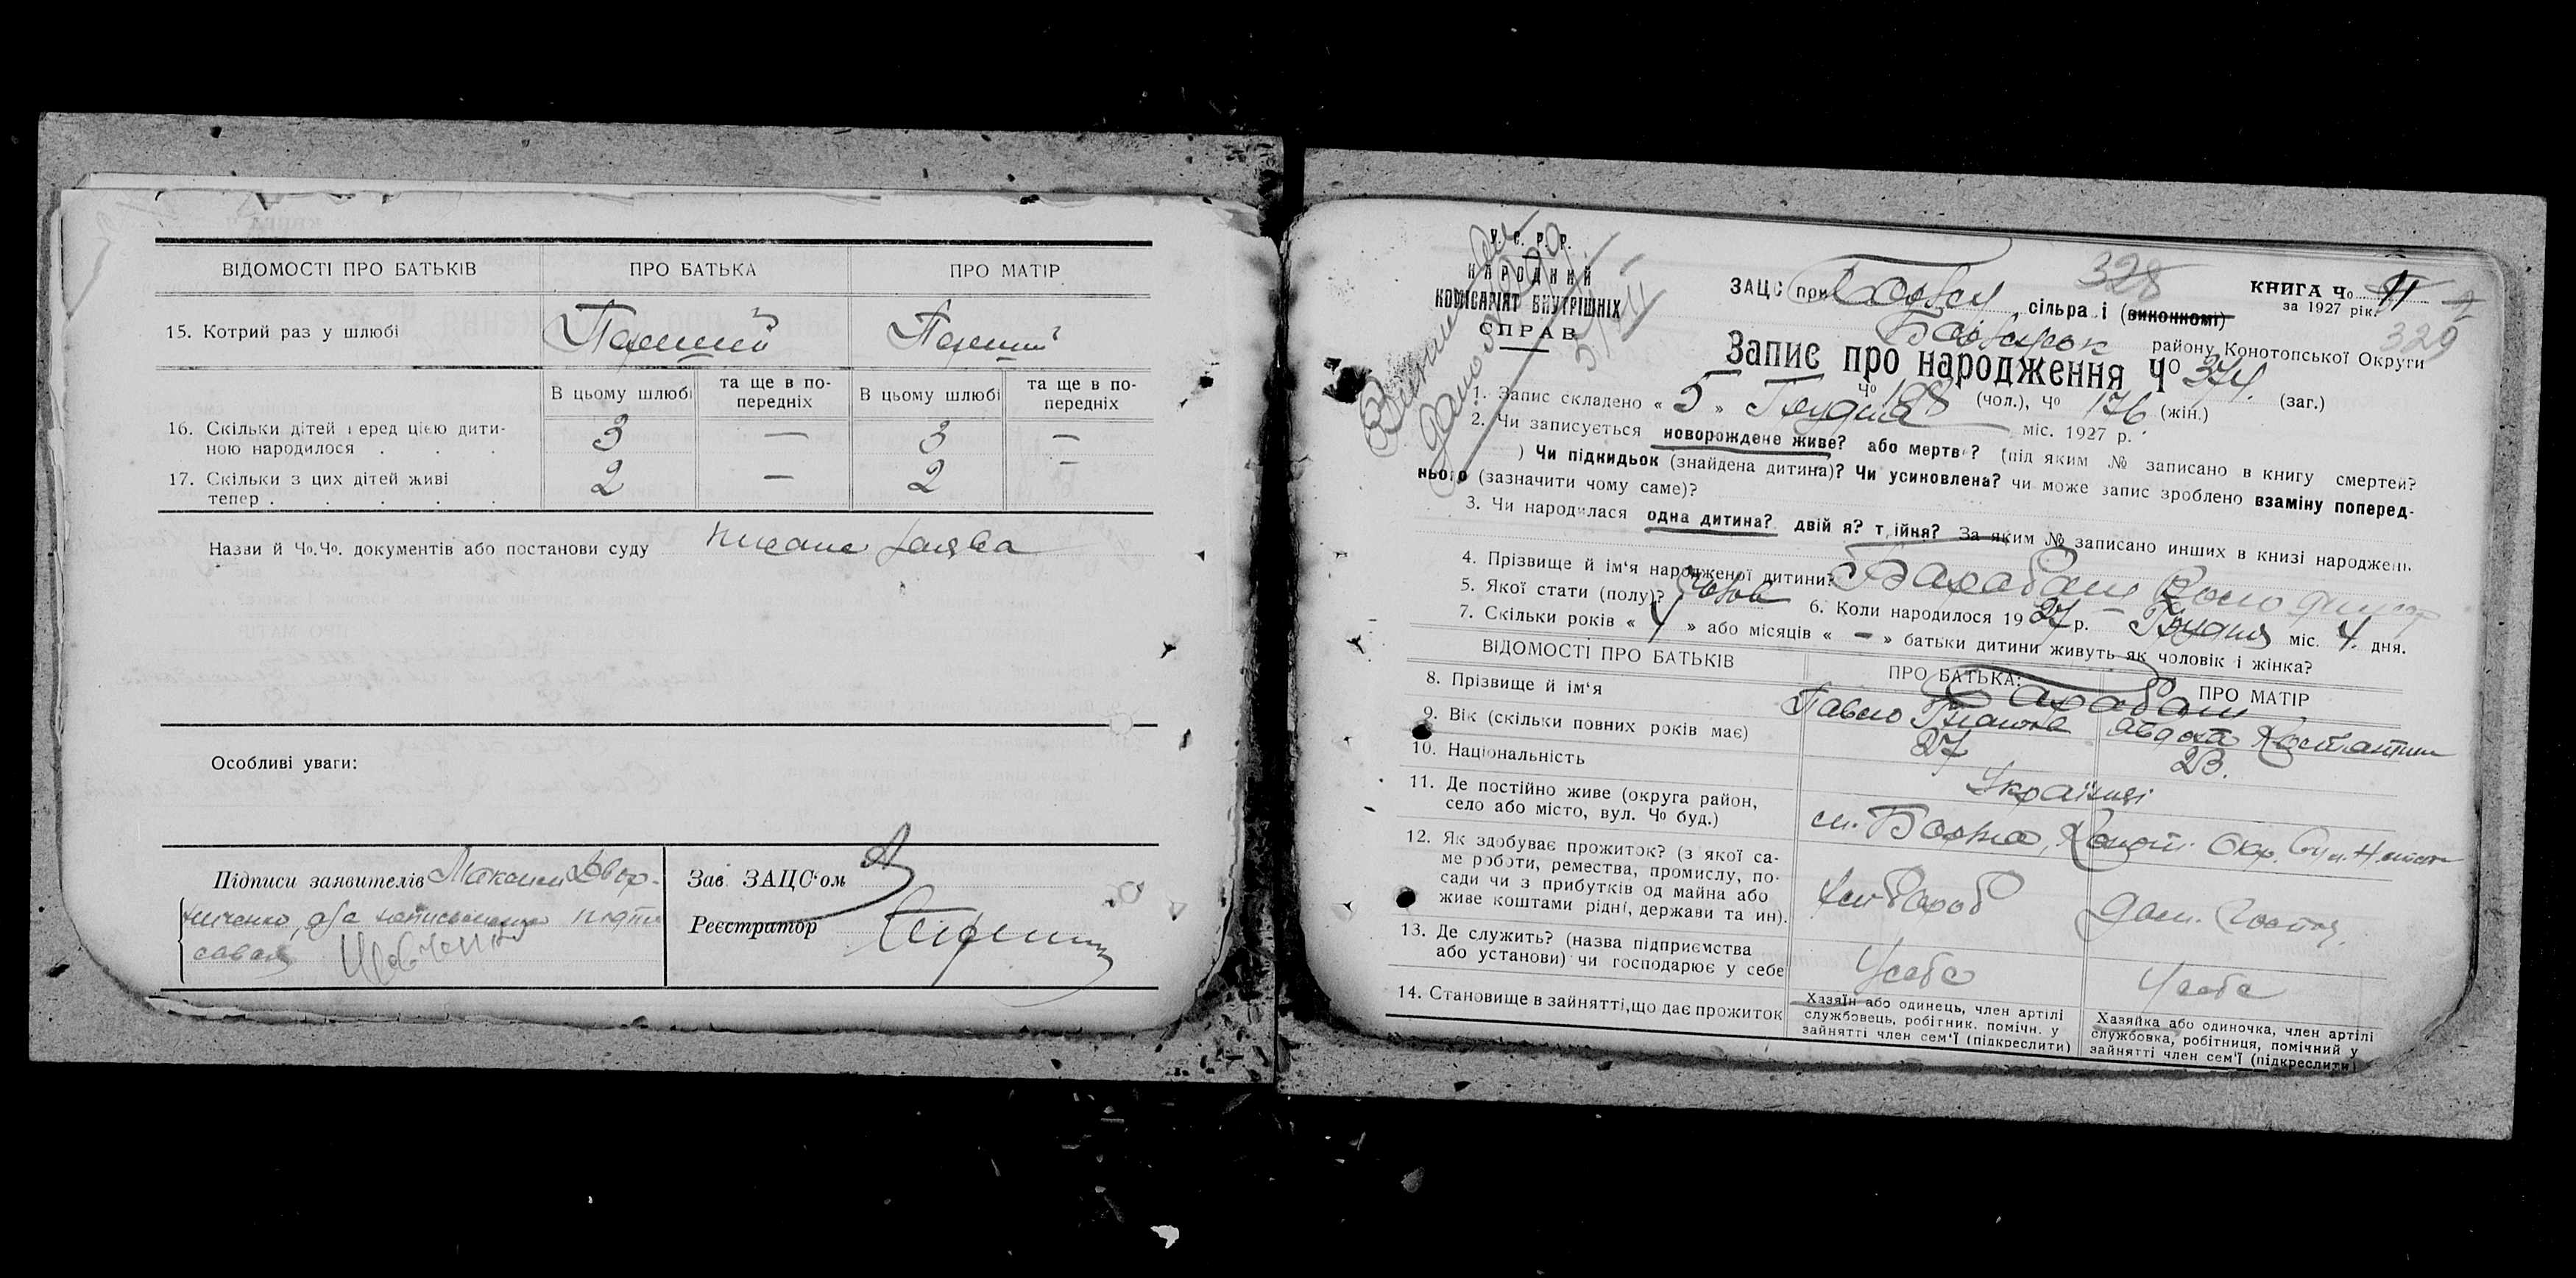 ВІДОМОСТІ ПРО БАТЬКІВ ПРО БАТЬКА ПРО МАТІР
15. Котрий раз у шлюбі Перший Перший
В цьому шлюбі та ще в по-передніх В цьому шлюбі та ще в по-передніх
16. Скільки дітей перед цією дити-
ною народилося . . . 3 — 3 —
17. Скільки з цих дітей живі
тепер . . . . . 2 — 2 —
Назви й Чо.Чо. документів або постанови суду
Особливі уваги:
Підписи заявителів
Зав. ЗАЦС'ом
Реєстратор
У. С. Р. Р.
НАРОДНИЙ
КОМІСАРІЯТ ВНУТРІШНІХ
СПРАВ
328
ЗАЦС при сільраді (виконкомі)
КНИГА Чо 11
за 1927 рік.
329
району Конотопської Округи
Запис про народження Чо 374.
Чо 198 (чол.), Чо 176 (жін.) (заг.)
1. Запис складено « 5 » Грудня міс. 1927 р.
2. Чи записується новорождене живе? або мертве? (під яким № записано в книгу смертей?
) Чи підкидьок (знайдена дитина)? Чи усиновлена? чи може запис зроблено взаміну поперед-
нього (зазначити чому саме)?
3. Чи народилася одна дитина? двійня? трійня? За яким № записано инших в книзі народжень
4. Прізвище й ім'я народженої дитини? Барабаш
5. Якої стати (полу)? Чолов 6. Коли народилося 1927 р. Грудня міс. 4. дня.
7. Скільки років « 4 » або місяців « — » батьки дитини живуть як чоловік і жінка?
ВІДОМОСТІ ПРО БАТЬКІВ ПРО БАТЬКА: ПРО МАТІР
8. Прізвище й ім'я Барабаш
Павло
9. Вік (скільки повних років має) 27 23.
10. Національність Українці
11. Де постійно живе (округа район,
село або місто, вул. Чо буд.) м. Борзна, Конот. Окр.
12. Як здобуває прожиток? (з якої са-
ме роботи, ремества, промислу, по-
сади чи з прибутків од майна або
живе коштами рідні, держави та ин). Хлібороб
13. Де служить? (назва підприємства
або установи) чи господарює у себе Усебе Усебе
14. Становище в зайнятті, що дає прожиток
Хазяїн або одинець, член артілі
службовець, робітник. помічн. у
зайнятті член сем'ї (підкреслити)
Хазяйка або одиночка, член артілі
службовка, робітниця, помічний у
зайнятті член сем'ї (підкреслити)